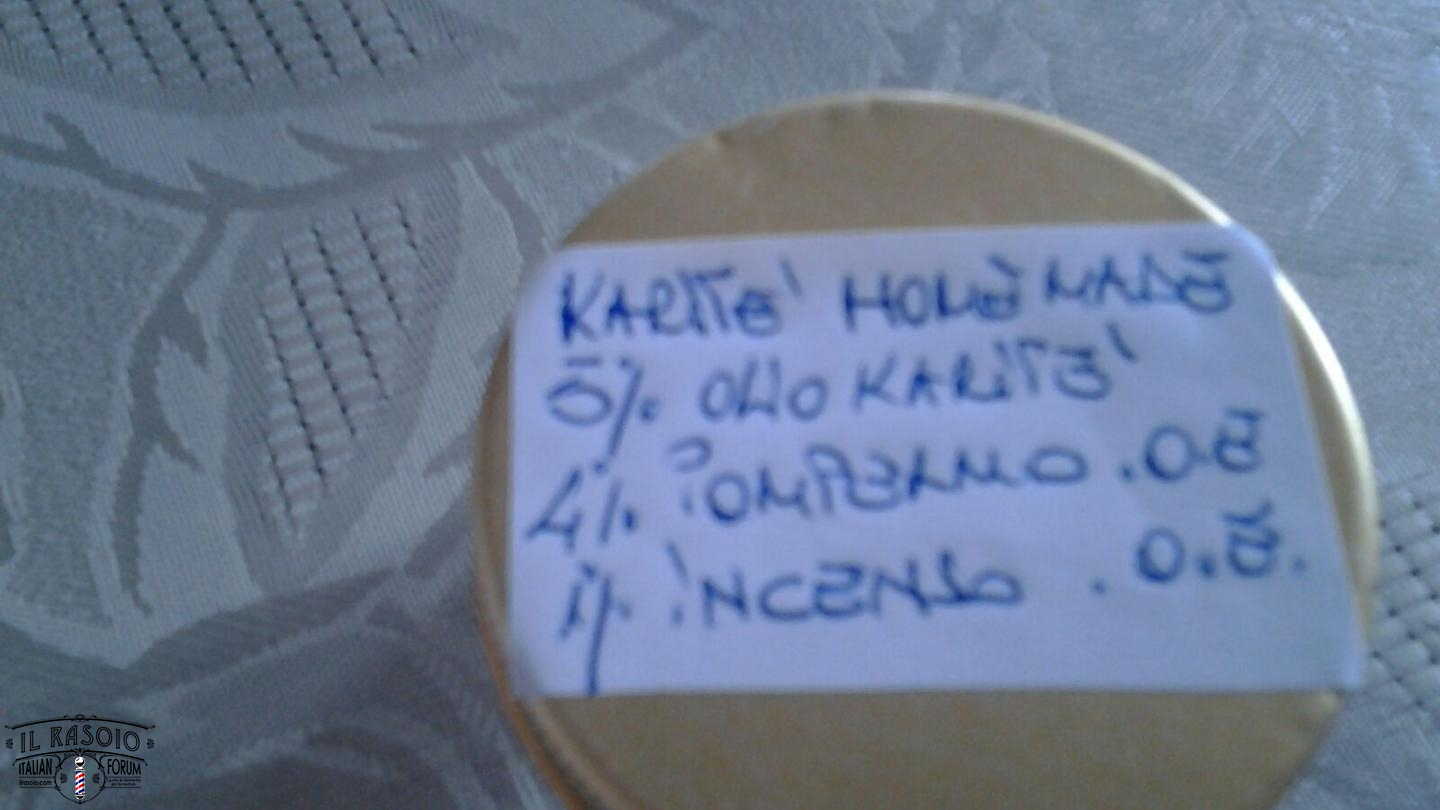 KARITE' HOME MADE
5% OLIO KARITE'
4% POMPELMO . O.E
1% INCENSO . O.E.
IL RASOIO
ITALIAN FORUM
ilrasoio.com